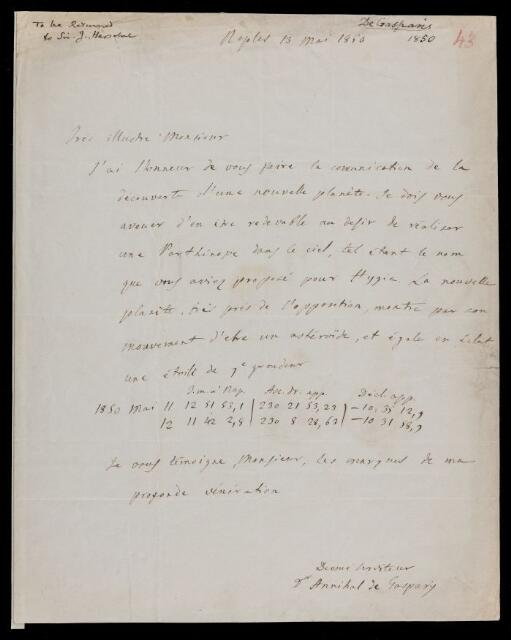 To be Returned
to Sir J. Herschel
De Gasparis
1850
43
Naples 13 Mai 1850
Tres illustre Monsieur
J'ai l'honneur de vous faire la comunication de la
decouverte d'une nouvelle planète. Je dois vous
avouer d'en etre redevable au desir de realiser
une Parthénope dans le ciel, tel étant le nom
que vous aviez proposé pour Hygia. La nouvelle
planète, très près de l'opposition, montre par son
mouvement d'etre un astéroïde, et égale en éclat
une étoile de 9e grandeur
t.m. à Nap. Asc. dr. app. Decl. app.
1850 Mai 11 12 51 53,1 230 21 53,23 -10, 35 12,9
12 11 42 2,8 230 8 28,63 -10 31 58,9
Je vous témoigne Monsieur, les marques de ma
profonde vénération
Annibal de Gasparis